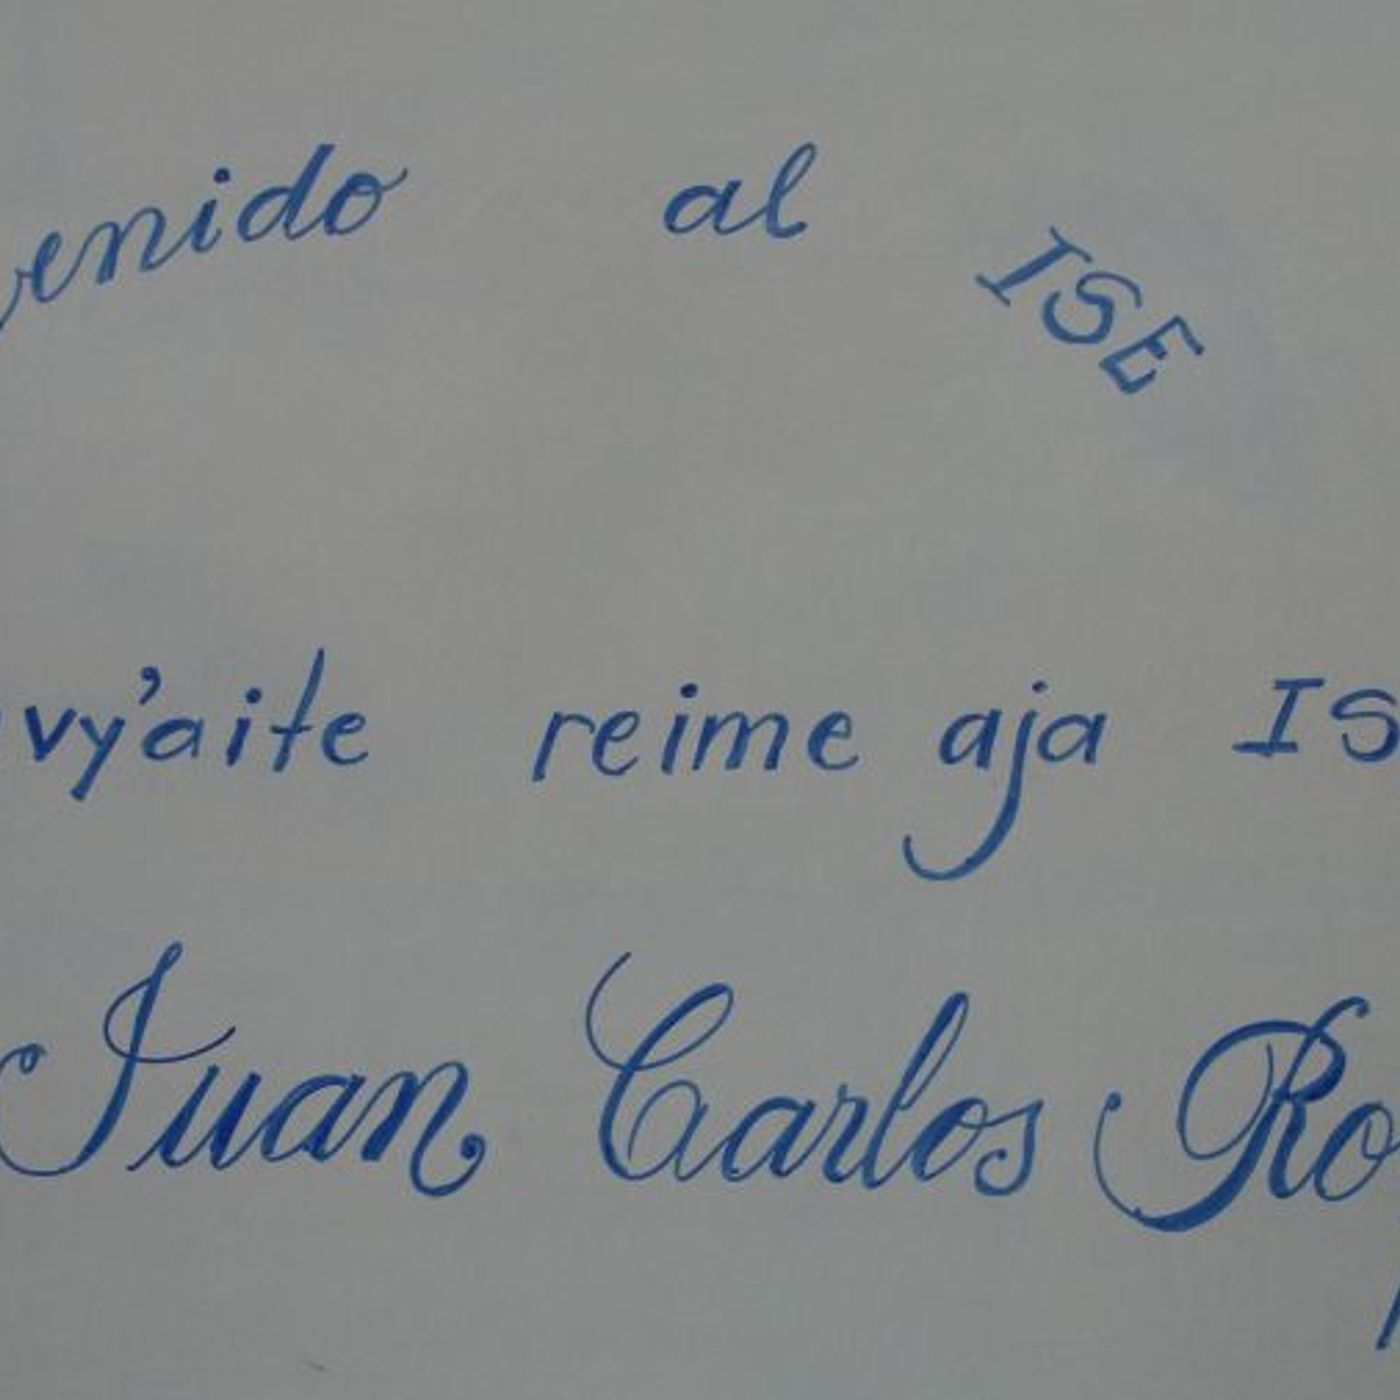 enido al ISE
vy'aite reime aja IS
Juan Carlos Ro